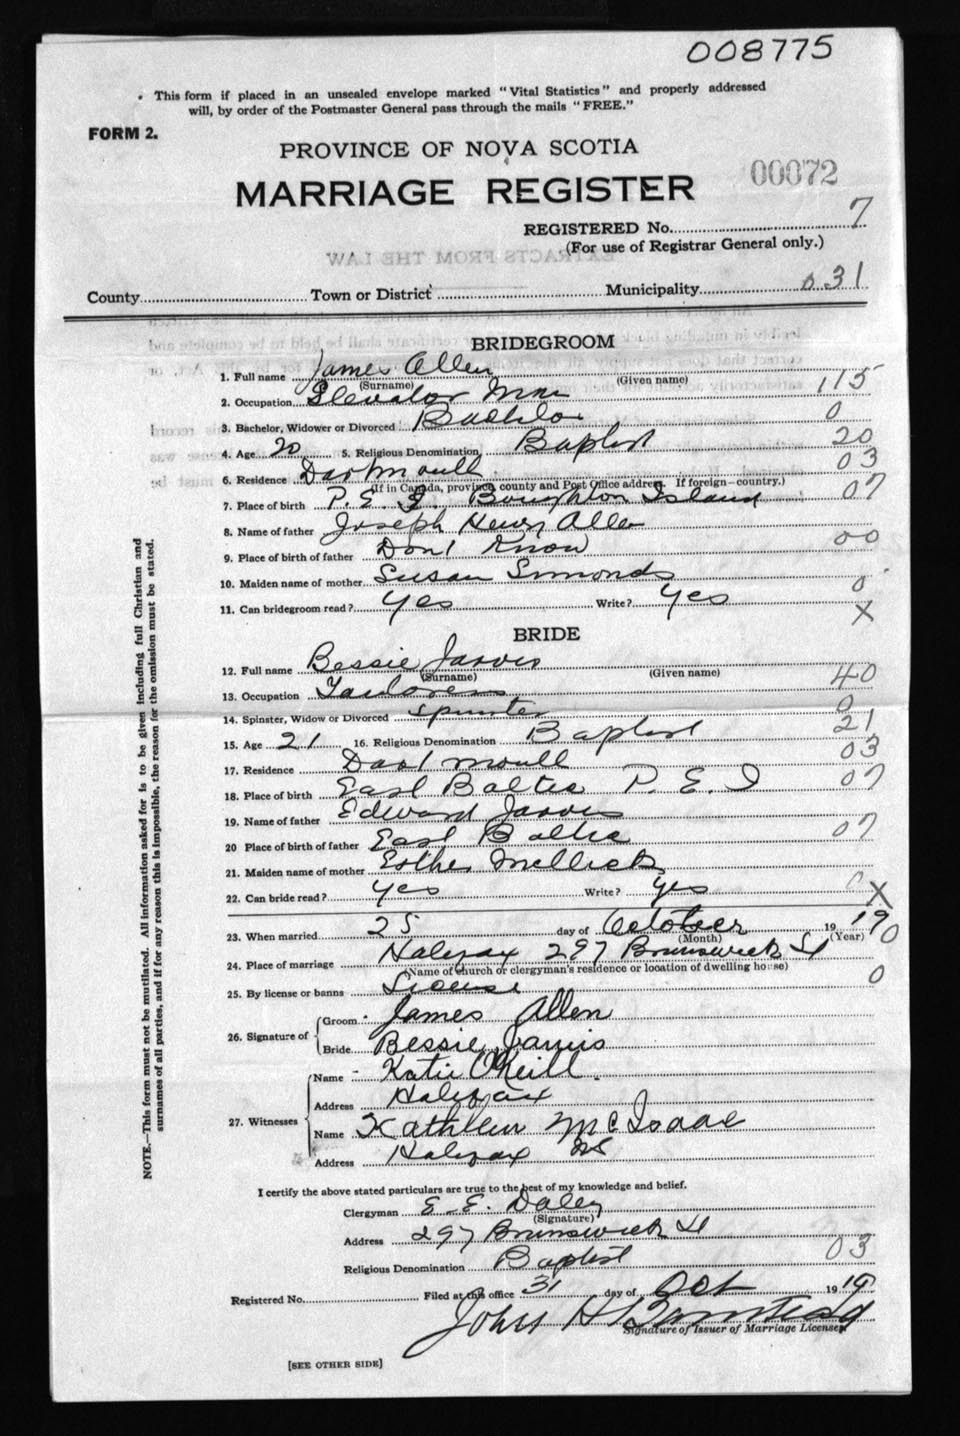 008775
This form if placed in an unsealed envelope marked "Vital Statistics" and properly addressed
will, by order of the Postmaster General pass through the mails "FREE."
FORM 2.
PROVINCE OF NOVA SCOTIA
00072
MARRIAGE REGISTER
REGISTERED No. 7
(For use of Registrar General only.)
EXTRACTS FROM THE LAW
County Town or District Municipality 031
BRIDEGROOM
1. Full name James Allen
(Surname) (Given name)
2. Occupation Elevator Man 115
3. Bachelor, Widower or Divorced Bachelor 0
4. Age 20 5. Religious Denomination Baptist 20
6. Residence Dartmouth 03
(If in Canada, province county and Post Office address. If foreign—country.)
7. Place of birth P. E. I. Boughton Island 07
8. Name of father Joseph Henry Allen
9. Place of birth of father Dont Know 00
10. Maiden name of mother Susan Simonds 0
11. Can bridegroom read? yes Write? yes X
BRIDE
12. Full name Bessie Jarvis
(Surname) (Given name)
13. Occupation Tailoress 40
14. Spinster, Widow or Divorced Spinster 0
15. Age 21 16. Religious Denomination Baptist 21
17. Residence Dartmouth 03
18. Place of birth East Baltic P. E. I 07
19. Name of father Edward Jarvis
20 Place of birth of father East Baltic 07
21. Maiden name of mother Esther Mellick
22. Can bride read? yes Write? yes 0 X
23. When married 25 day of October 1919 0
(Month) (Year)
24. Place of marriage Halifax 297 Brunswick St
(Name of church or clergyman's residence or location of dwelling house)
25. By license or banns License 0
26. Signature of Groom James Allen
Bride Bessie Jarvis
27. Witnesses Name Katie O'Neill
Address Halifax
Name Kathleen McIsaac
Address Halifax NS
I certify the above stated particulars are true to the best of my knowledge and belief.
Clergyman E. E. Daley
(Signature)
Address 297 Brunswick St
Religious Denomination Baptist 03
Registered No. Filed at this office 31 day of Oct 1919
John H Barnstead
Signature of Issuer of Marriage Licenses
[SEE OTHER SIDE]
NOTE.—This form must not be mutilated. All information asked for is to be given including full Christian and
surnames of all parties, and if for any reason this is impossible, the reason for the omission must be stated.